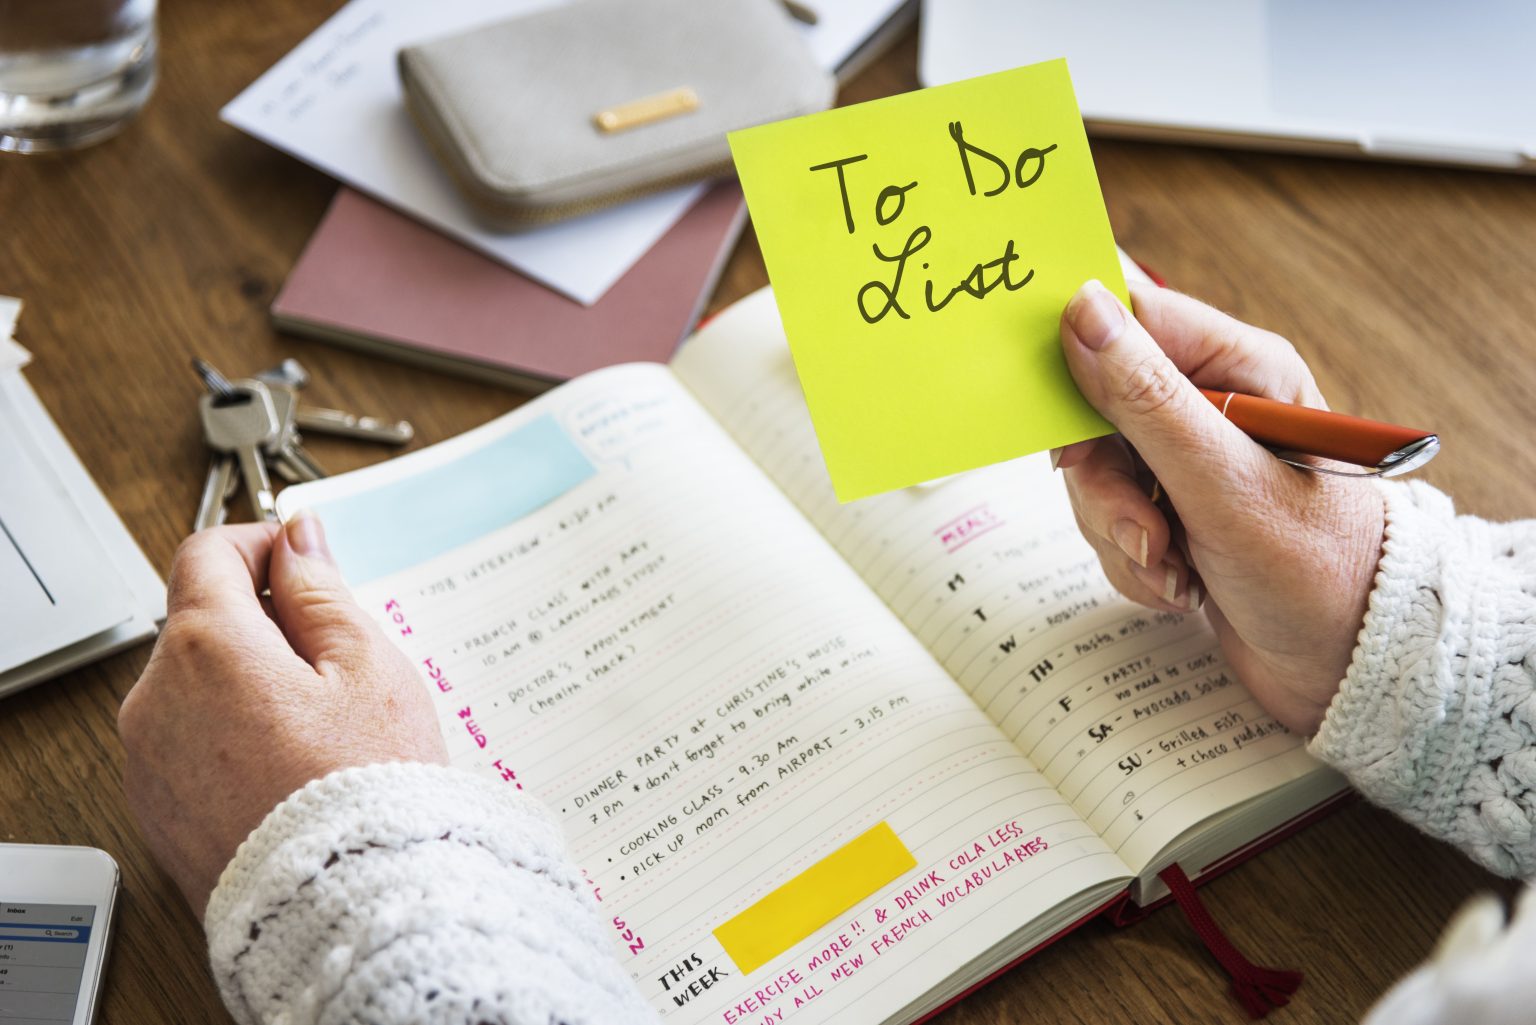 To Do
List
MON
TUE
WED
TH
SUN
JOB INTERVIEW - 4:30 PM
• FRENCH CLASS WITH AMY
10 AM @ LANGUAGES STUDIO
• DOCTOR'S APPOINTMENT
(health check)
• DINNER PARTY at CHRISTINE'S HOUSE
7 PM * don't forget to bring white wine!
• COOKING CLASS - 9.30 AM
• PICK UP mom from AIRPORT - 3,15 pm
THIS
WEEK
EXERCISE MORE!! & DRINK COLA LESS
ALL NEW FRENCH VOCABULARIES
MEALS
M -
T -
+
W - Roasted
TH - Pasta with
F - PARTY?
no need to cook
SA - Avocado salad
SU - Grilled Fish
+ choco pudding
Inbox
Edit
Search